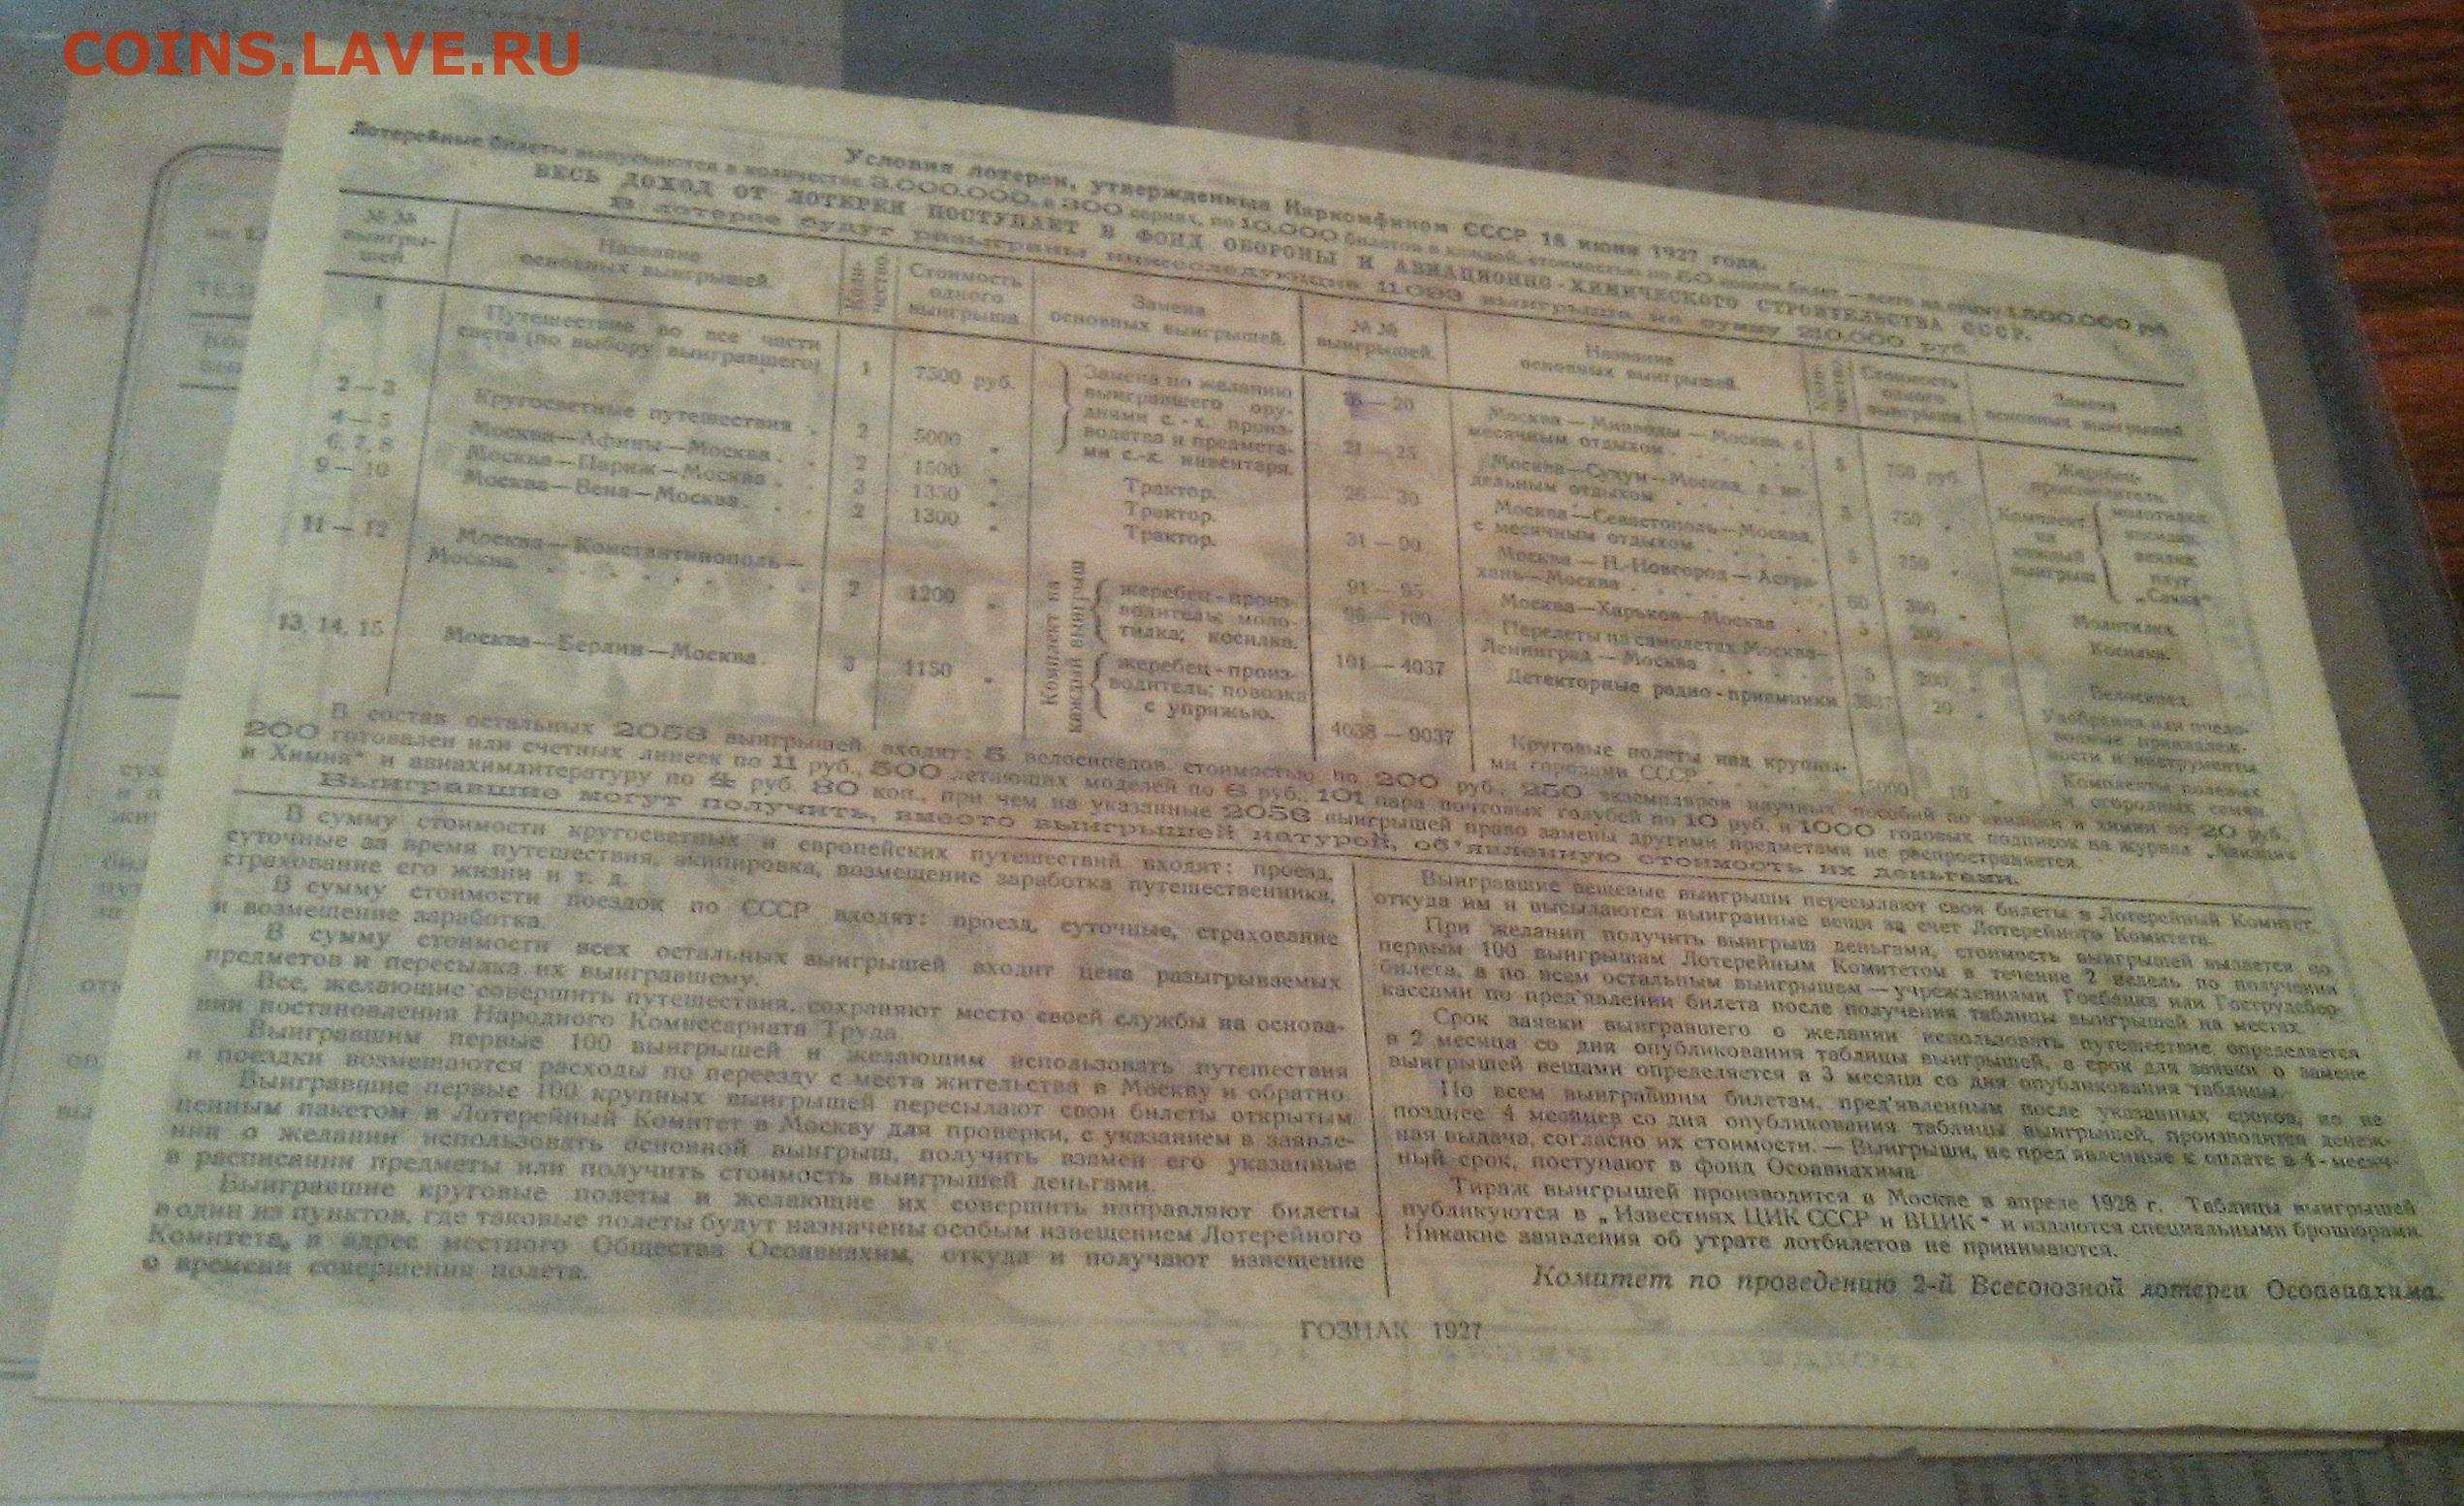 COINS.LAVE.RU
Условия лотереи, утвержденные Наркомфином СССР 18 июня 1927 года.
Лотерейные билеты выпускаются в количестве 3.000.000, в 300 сериях, по 10.000 билетов в каждой, стоимостью по 50 копеек билет — всего на сумму 1.500.000 руб.
ВЕСЬ ДОХОД ОТ ЛОТЕРЕИ ПОСТУПАЕТ В ФОНД ОБОРОНЫ И АВИАЦИОННО-ХИМИЧЕСКОГО СТРОИТЕЛЬСТВА СССР.
В лотерее будут разыграны нижеследующие 11.093 выигрыша на сумму 210.000 руб.
№ № выигры-шей. Название основных выигрышей. Коли-чество. Стоимость одного выигрыша. Замена основных выигрышей.
1 Путешествие во все части света (по выбору выигравшего) 1 7500 руб.
2—3 Кругосветные путешествия . 2 5000 „
Замена по желанию
выигравшего ору-
диями с.-х. произ-
водства и предмета-
ми с.-х. инвентаря.
4—5 Москва—Афины—Москва . . 2 1500 „ Трактор.
6, 7, 8 Москва—Париж—Москва . . 3 1350 „ Трактор.
9—10 Москва—Вена—Москва . . . 2 1300 „ Трактор.
11—12 Москва—Константинополь—Москва. 2 1200 „
Комплект на каждый выигрыш
жеребец-произ-
водитель; моло-
тилка; косилка.
13, 14, 15 Москва—Берлин—Москва . 3 1150 „
жеребец-произ-
водитель; повозка
с упряжью.
№ № выигрышей. Название основных выигрышей. Коли-чество. Стоимость одного выигрыша. Замена основных выигрышей.
16—20 Москва—Минводы—Москва, с месячным отдыхом 5 750 руб. Жеребец-производитель.
21—25 Москва—Сухум—Москва, с дельным отдыхом 5 750 „
26—30 Москва—Севастополь—Москва, с месячным отдыхом 5 750 „
Комплект на каждый выигрыш
молотилка
косилка
веялка
плуг
„Сакка“
31—90 Москва—Н.-Новгород—Астра-хань—Москва 60 300 „ Молотилка.
91—95 Москва—Харьков—Москва . . 5 200 „ Косилка.
96—100 Перелеты на самолетах Москва—Ленинград—Москва 5 200 „ Велосипед.
101—4037 Детекторные радио-приемники 3937 20 „ Удобрения или пчело-водные принадлеж-ности и инструменты
4038—9037 Круговые полеты над крупны-ми городами СССР 5000 10 „ Комплекты полевых и огородных семян.
В состав остальных 2056 выигрышей входят: 5 велосипедов стоимостью по 200 руб., 250 экземпляров научных пособий по авиации и химии по 20 руб.,
200 готовален или счетных линеек по 11 руб., 500 летающих моделей по 6 руб., 101 пара почтовых голубей по 10 руб. и 1000 годовых подписок на журнал „Авиация
и Химия“ и авиахимлитературу по 4 руб. 80 коп., при чем на указанные 2056 выигрышей право замены другими предметами не распространяется.
Выигравшие могут получить, вместо выигрышей натурой, об'явленную стоимость их деньгами.
В сумму стоимости кругосветных и европейских путешествий входят: проезд,
суточные за время путешествия, экипировка, возмещение заработка путешественника,
страхование его жизни и т. д.
В сумму стоимости поездок по СССР входят: проезд, суточные, страхование
и возмещение заработка.
В сумму стоимости всех остальных выигрышей входит цена разыгрываемых
предметов и пересылка их выигравшему.
Все, желающие совершить путешествия, сохраняют место своей службы на основа-
нии постановления Народного Комиссариата Труда
Выигравшим первые 100 выигрышей и желающим использовать путешествия
и поездки возмещаются расходы по переезду с места жительства в Москву и обратно.
Выигравшие первые 100 крупных выигрышей пересылают свои билеты открытым
ценным пакетом в Лотерейный Комитет в Москву для проверки, с указанием в заявле-
нии о желании использовать основной выигрыш, получить взамен его указанные
в расписании предметы или получить стоимость выигрышей деньгами.
Выигравшие круговые полеты и желающие их совершить направляют билеты
в один из пунктов, где таковые полеты будут назначены особым извещением Лотерейного
Комитета, в адрес местного Общества Осоавиахим, откуда и получают извещение
о времени совершения полета.
Выигравшие вещевые выигрыши пересылают свои билеты в Лотерейный Комитет,
откуда им и высылаются выигранные вещи за счет Лотерейного Комитета.
При желании получить выигрыш деньгами, стоимость выигрышей выдается по
первым 100 выигрышам Лотерейным Комитетом в течение 2 недель по получении
билета, а по всем остальным выигрышам—учреждениями Госбанка или Гострудсбер-
кассами по пред'явлении билета после получения таблицы выигрышей на местах.
Срок заявки выигравшего о желании использовать путешествие определяется
в 2 месяца со дня опубликования таблицы выигрышей, а срок для заявки о замене
выигрышей вещами определяется в 3 месяца со дня опубликования таблицы.
По всем выигравшим билетам, пред'явленным после указанных сроков, но не
позднее 4 месяцев со дня опубликования таблицы выигрышей, производится денеж-
ная выдача, согласно их стоимости.—Выигрыши, не пред'явленные к оплате в 4-месяч-
ный срок, поступают в фонд Осоавиахима.
Тираж выигрышей производится в Москве в апреле 1928 г. Таблицы выигрышей
публикуются в „Известиях ЦИК СССР и ВЦИК“ и издаются специальными брошюрами.
Никакие заявления об утрате лотбилетов не принимаются.
Комитет по проведению 2-й Всесоюзной лотереи Осоавиахима.
ГОЗНАК 1927